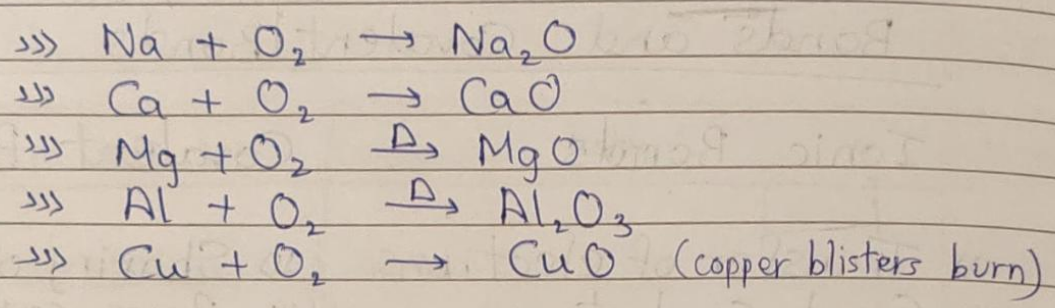 >>> Na + O₂ → Na₂O
>>> Ca + O₂ → CaO
>>> Mg + O₂ —Δ→ MgO
>>> Al + O₂ —Δ→ Al₂O₃
>>> Cu + O₂ → CuO (copper blisters burn)